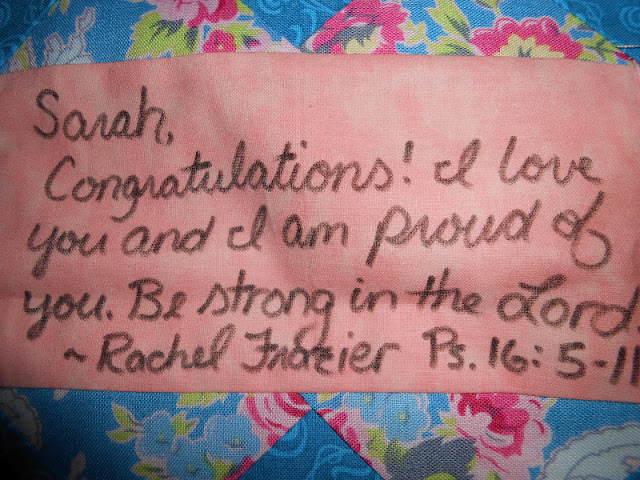 Sarah,
Congratulations! I love
you and I am proud of
you. Be strong in the Lord.
~Rachel Frazier Ps. 16:5-11